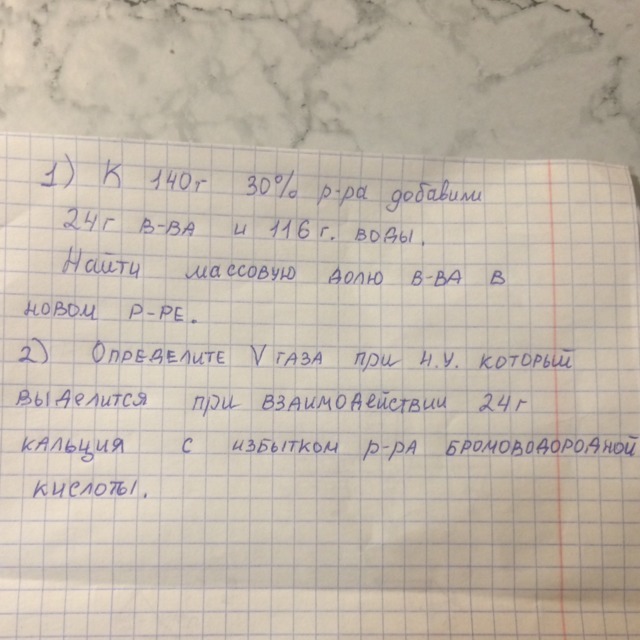 1) К 140г 30% р-ра добавили
24г в-ва и 116г. воды.
Найти массовую долю в-ва в
новом р-ре.
2) Определите V газа при н.у. который
выделится при взаимодействии 24г
кальция с избытком р-ра бромоводородной
кислоты.